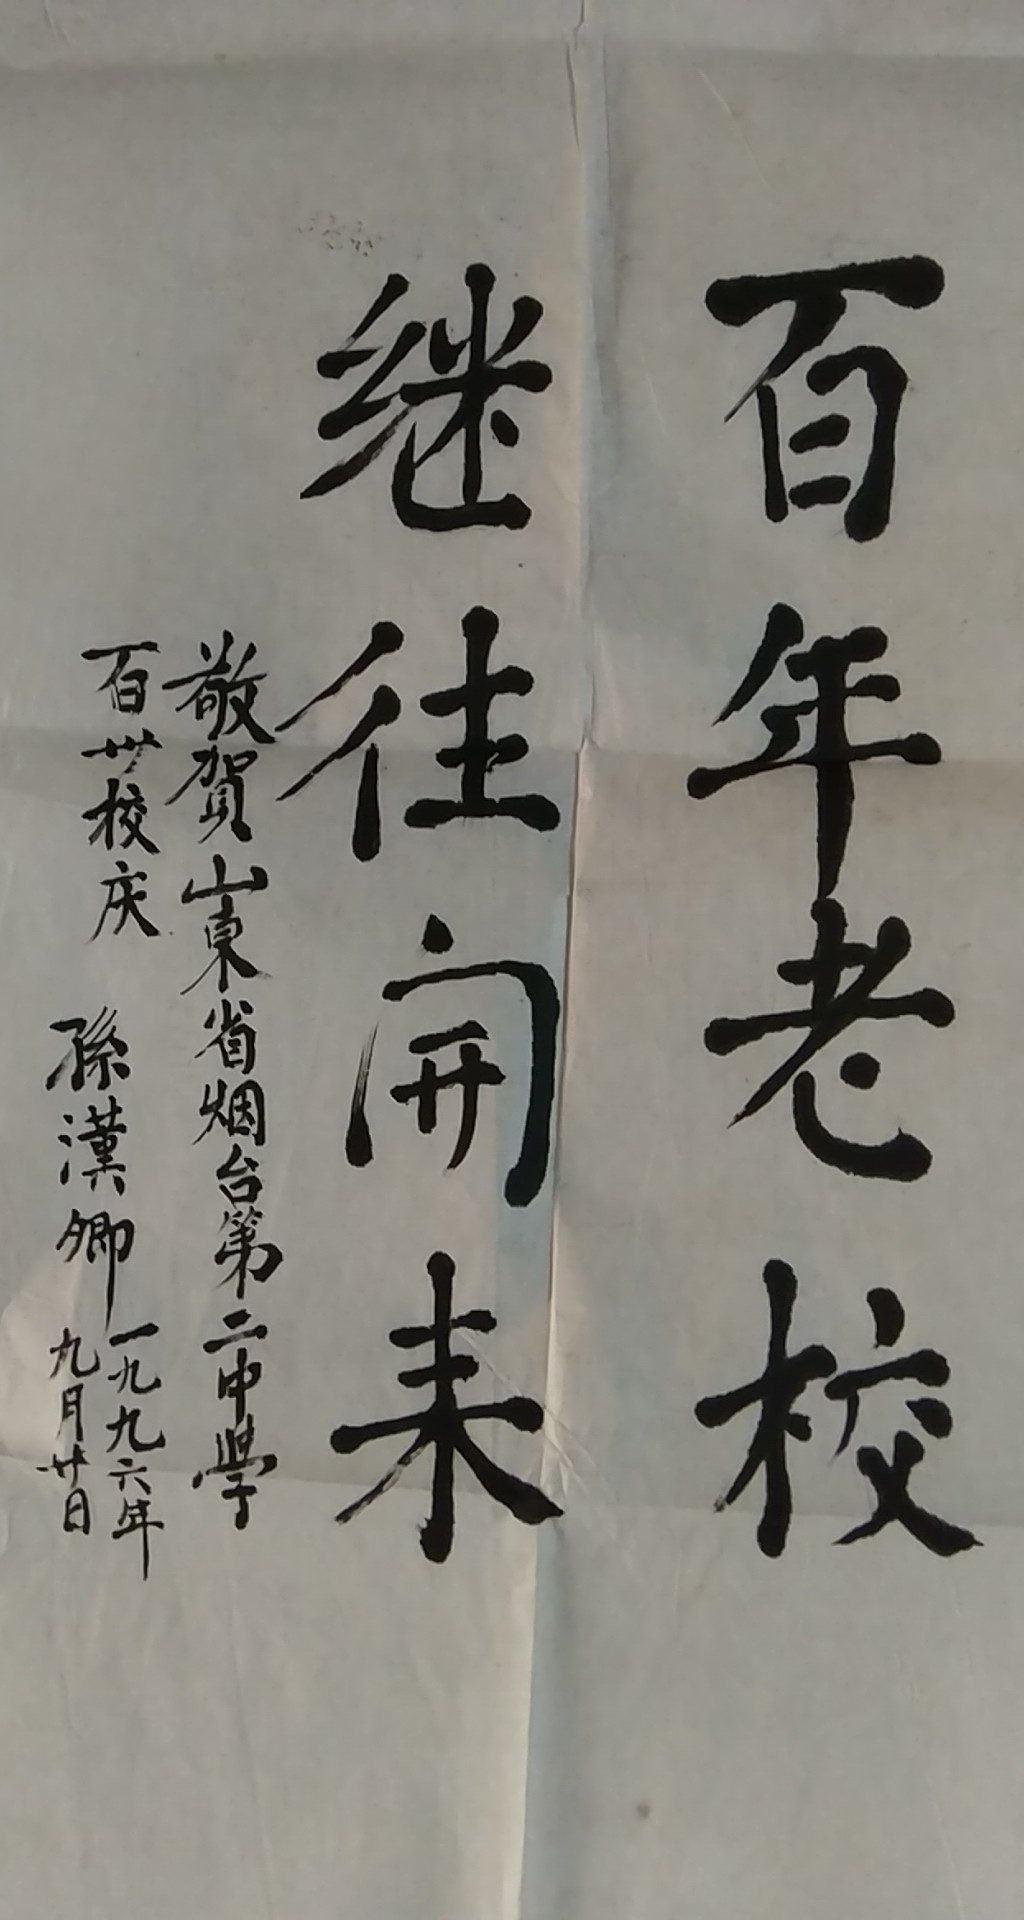 百年老校
继往开来
敬賀山東省烟台第二中學
百卅校庆 孫漢卿
一九九六年
九月廿日